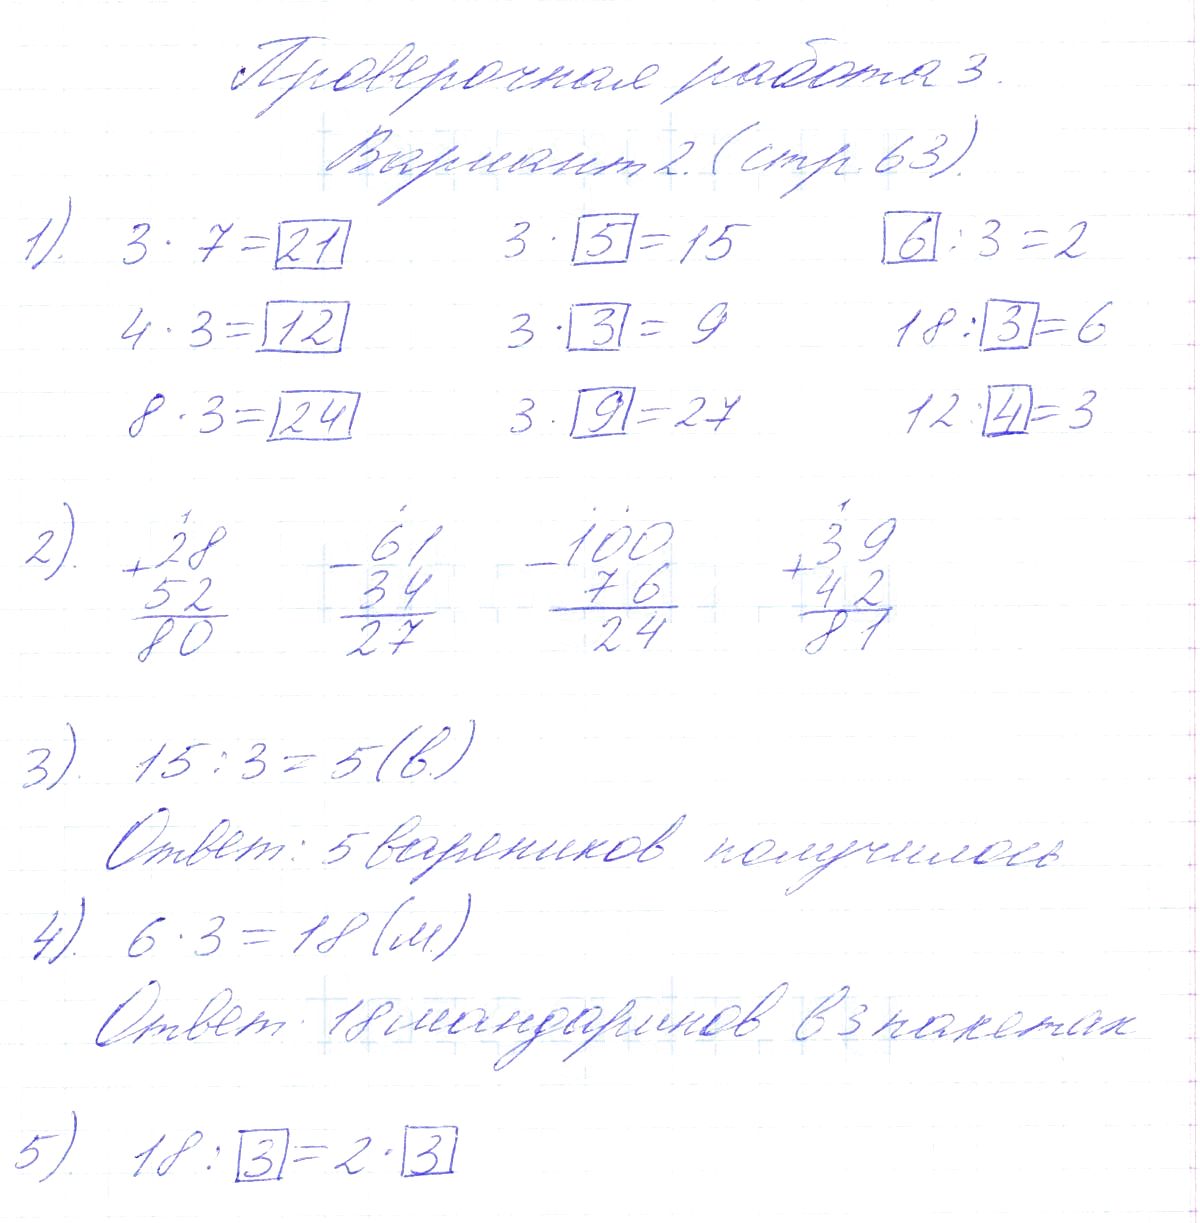 Проверочная работа 3.
Вариант 2. (стр. 63).
1). 3 · 7 = 21 3 · 5 = 15 6 : 3 = 2
4 · 3 = 12 3 · 3 = 9 18 : 3 = 6
8 · 3 = 24 3 · 9 = 27 12 : 4 = 3
2). 1 . . . 1
+ 28 - 61 - 100 + 39
52 34 76 42
80 27 24 81
3). 15 : 3 = 5 (в.)
Ответ: 5 вареников получилось
4). 6 · 3 = 18 (м.)
Ответ: 18 мандаринов в 3 пакетах
5). 18 : 3 = 2 · 3